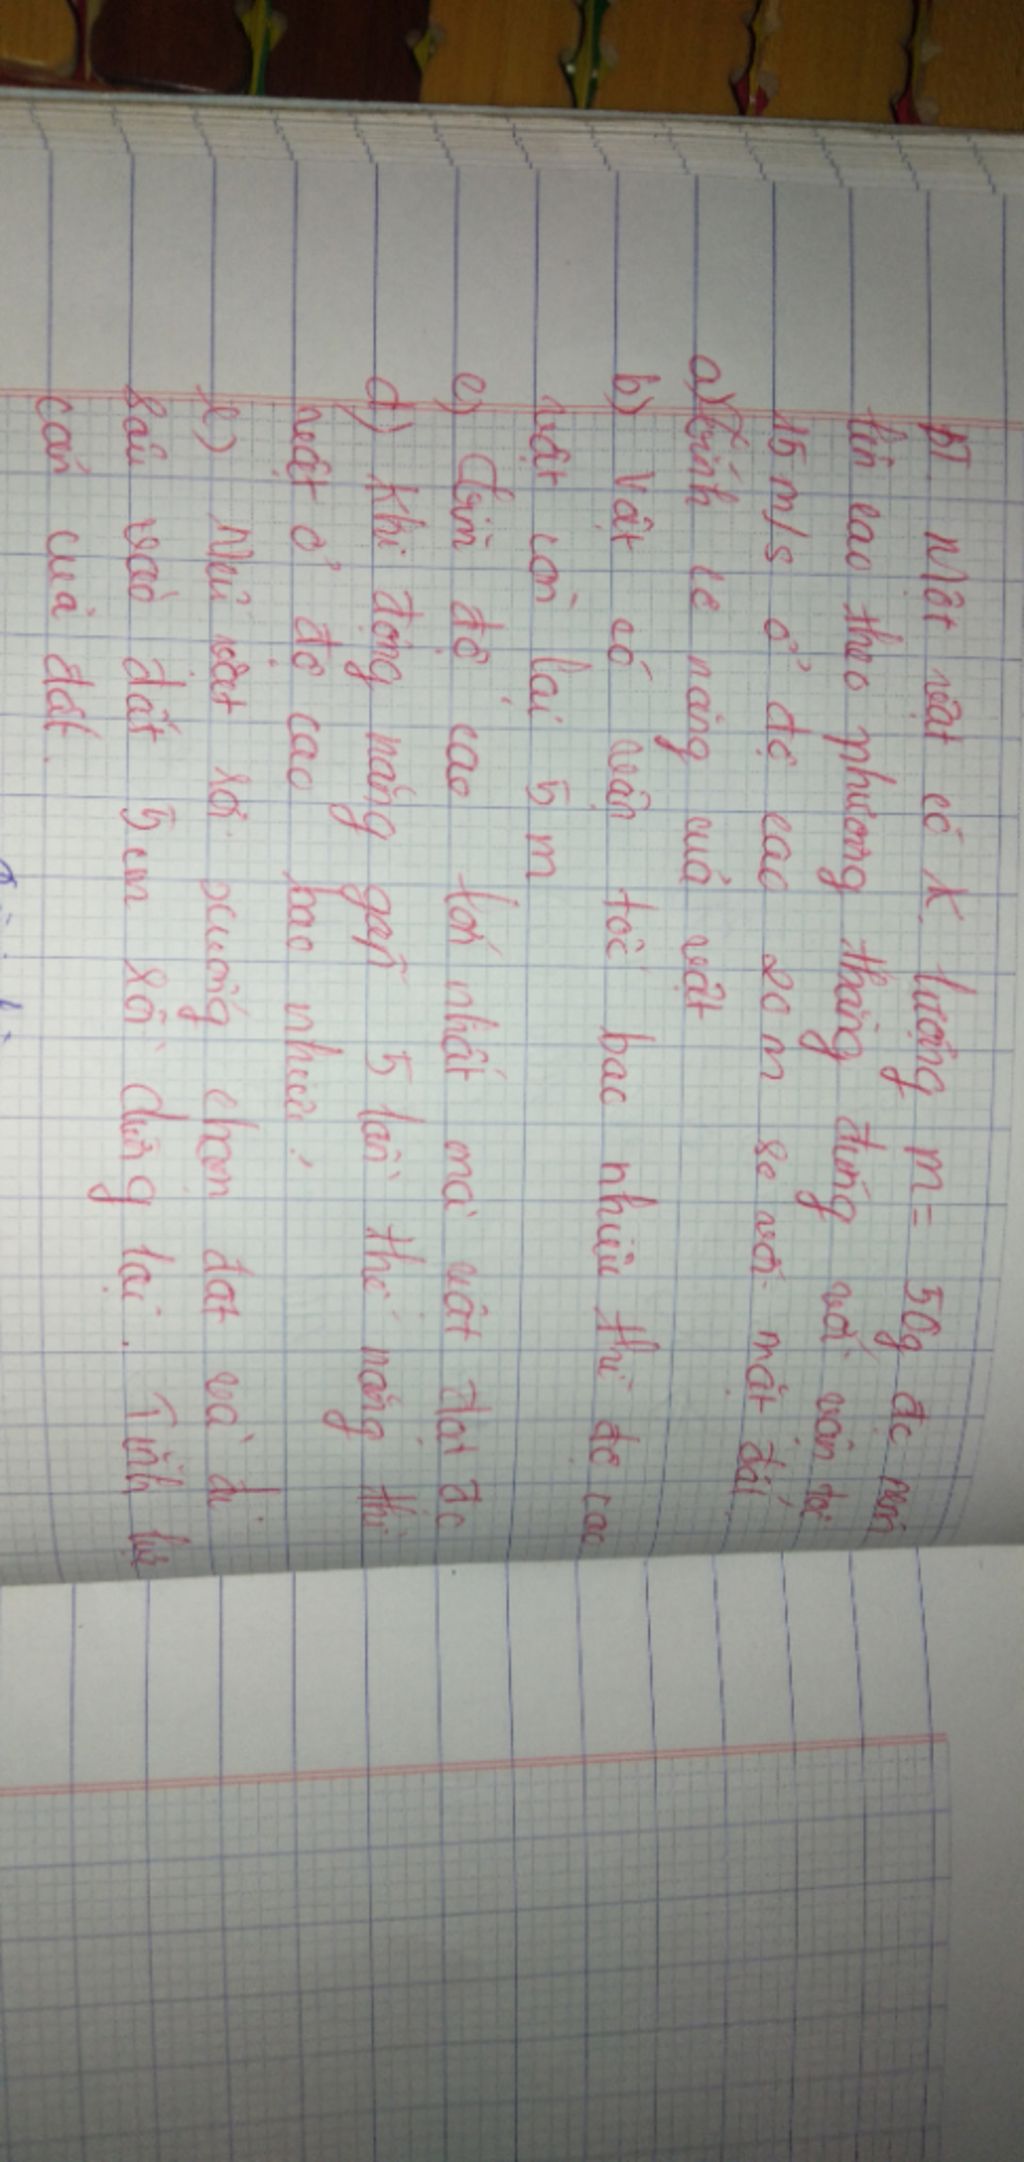 BT. Một vật có k. lượng m = 50g đc ném
lên cao theo phương thẳng đứng với vận tốc
15 m/s ở độ cao 20 m so với mặt đất.
a) Tính cơ năng của vật
b) Vật có vận tốc bao nhiêu thì độ cao
vật còn lại 5 m
c) Tìm độ cao lớn nhất mà vật đạt đc
d) Khi động năng gấp 5 lần thế năng thì
vật ở độ cao bao nhiêu?
e) Nếu vật rơi xuống chạm đất và đi
sâu vào đất 5 cm rồi dừng lại. Tính lực
cản của đất.